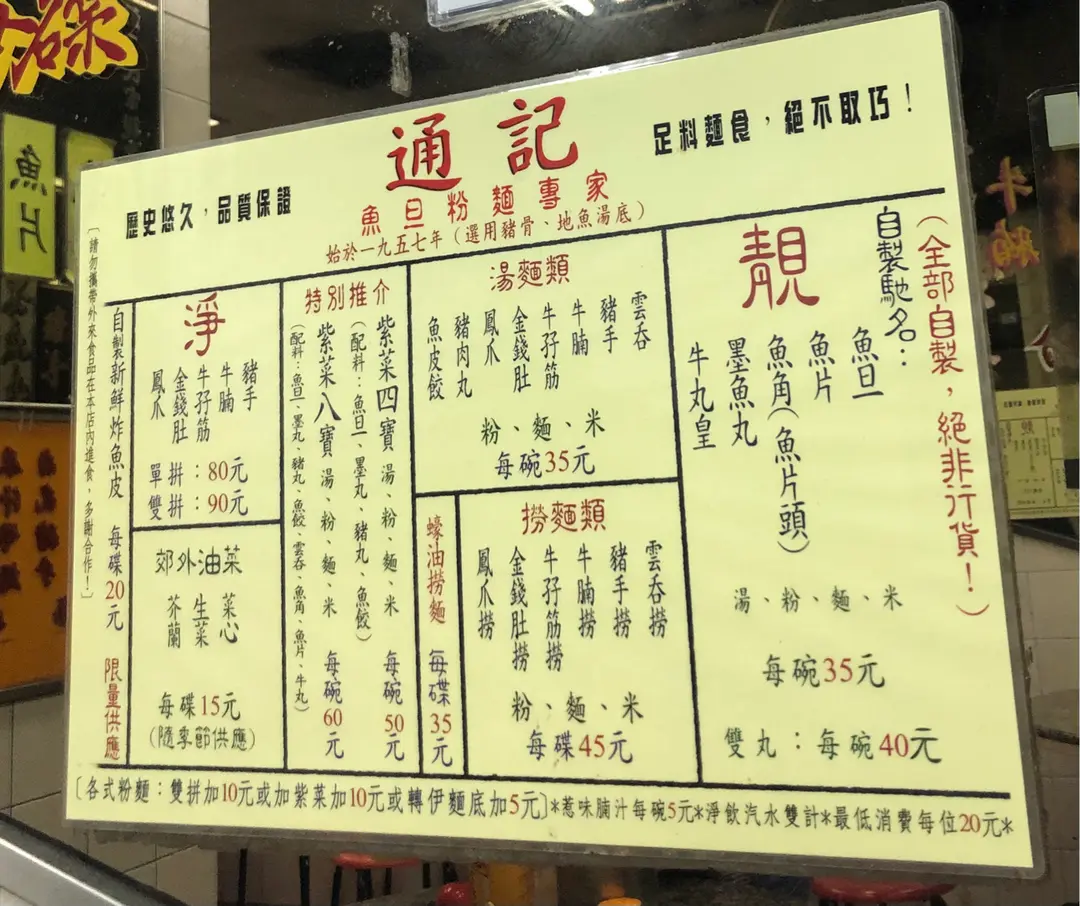 通記
魚旦粉麵專家
始於一九五七年（選用豬骨、地魚湯底）
歷史悠久，品質保證
足料麵食，絕不取巧！
（全部自製，絕非行貨！）
自製馳名：
靚
魚旦
魚片
魚角（魚片頭）
墨魚丸
牛丸皇
湯、粉、麵、米
每碗35元
雙丸：每碗40元
湯麵類
雲吞
豬手
牛腩
牛孖筋
金錢肚
鳳爪
豬肉丸
魚皮餃
粉、麵、米
每碗35元
撈麵類
雲吞撈
豬手撈
牛腩撈
牛孖筋撈
金錢肚撈
鳳爪撈
粉、麵、米
每碟45元
蠔油撈麵 每碟35元
特別推介
紫菜四寶 湯、粉、麵、米 每碗50元
（配料：魚旦、墨丸、豬丸、魚餃）
紫菜八寶 湯、粉、麵、米 每碗60元
（配料：魚旦、墨丸、豬丸、魚餃、雲吞、魚角、魚片、牛丸）
淨
豬手
牛腩
牛孖筋
金錢肚
鳳爪
單拼：80元
雙拼：90元
郊外油菜
菜心
生菜
芥蘭
每碟15元
（隨季節供應）
自製新鮮炸魚皮 每碟20元 限量供應
〔請勿攜帶外來食品在本店內進食，多謝合作！〕
〔各式粉麵：雙拼加10元或加紫菜加10元或轉伊麵底加5元〕*惹味腩汁每碗5元*淨飲汽水雙計*最低消費每位20元*
魚片